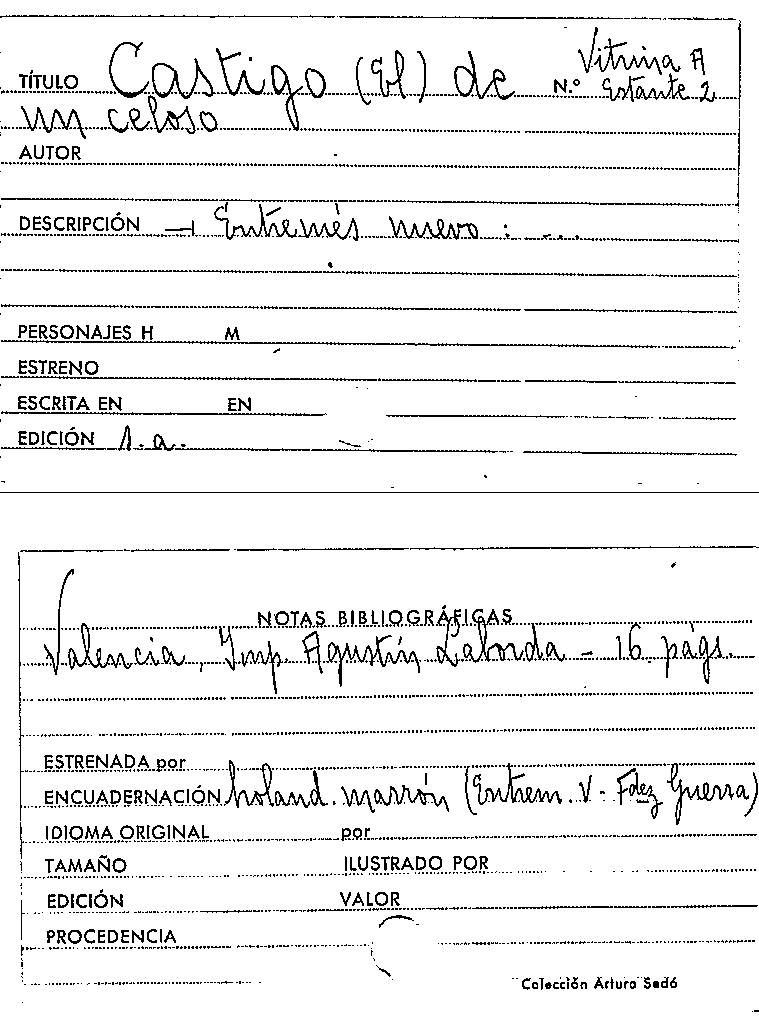 Vitrina A
TÍTULO Castigo (El) de N.º Estante 2
un celoso
AUTOR
DESCRIPCIÓN → Entremés nuevo: ...
PERSONAJES H M
ESTRENO
ESCRITA EN EN
EDICIÓN 1.a.
NOTAS BIBLIOGRÁFICAS
Valencia, Imp. Agustín Laborda - 16 págs.
ESTRENADA por
ENCUADERNACIÓN holand. marrón (Entrem. V - Fdez Guerra)
IDIOMA ORIGINAL por
TAMAÑO ILUSTRADO POR
EDICIÓN VALOR
PROCEDENCIA
Colección Arturo Sedó